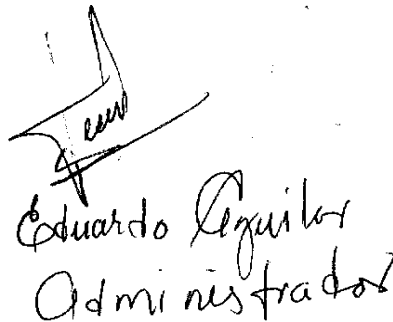 Eduardo Aguilar
Administrador